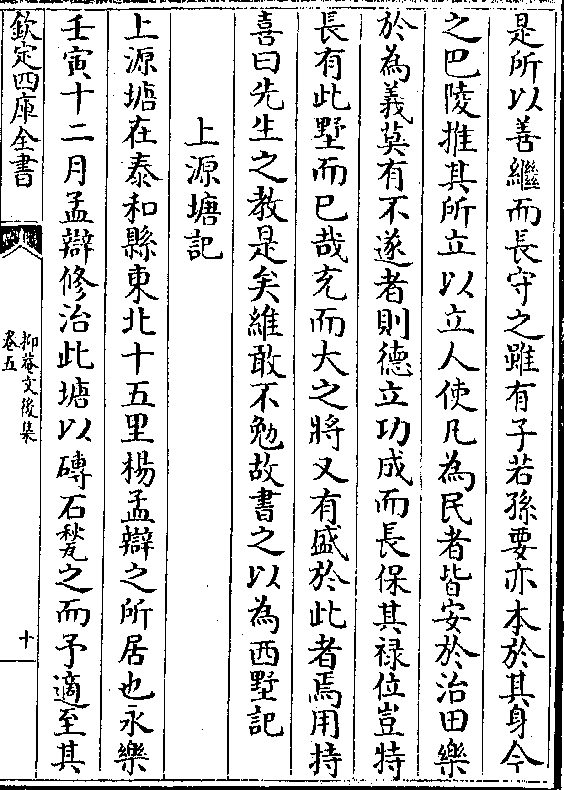 是所以善繼而長守之雖有子若孫要亦本於其身今
之巴陵推其所立以立人使凡為民者皆安於治田樂
於為義莫有不遂者則德立功成而長保其禄位豈特
長有此墅而已哉充而大之將又有盛於此者焉用持
喜曰先生之教是矣維敢不勉故書之以為西墅記
上源塘記
上源塘在泰和縣東北十五里楊孟辯之所居也永樂
壬寅十二月孟辯修治此塘以磚石甃之而予適至其
欽定四庫全書
抑菴文後集
卷五
十